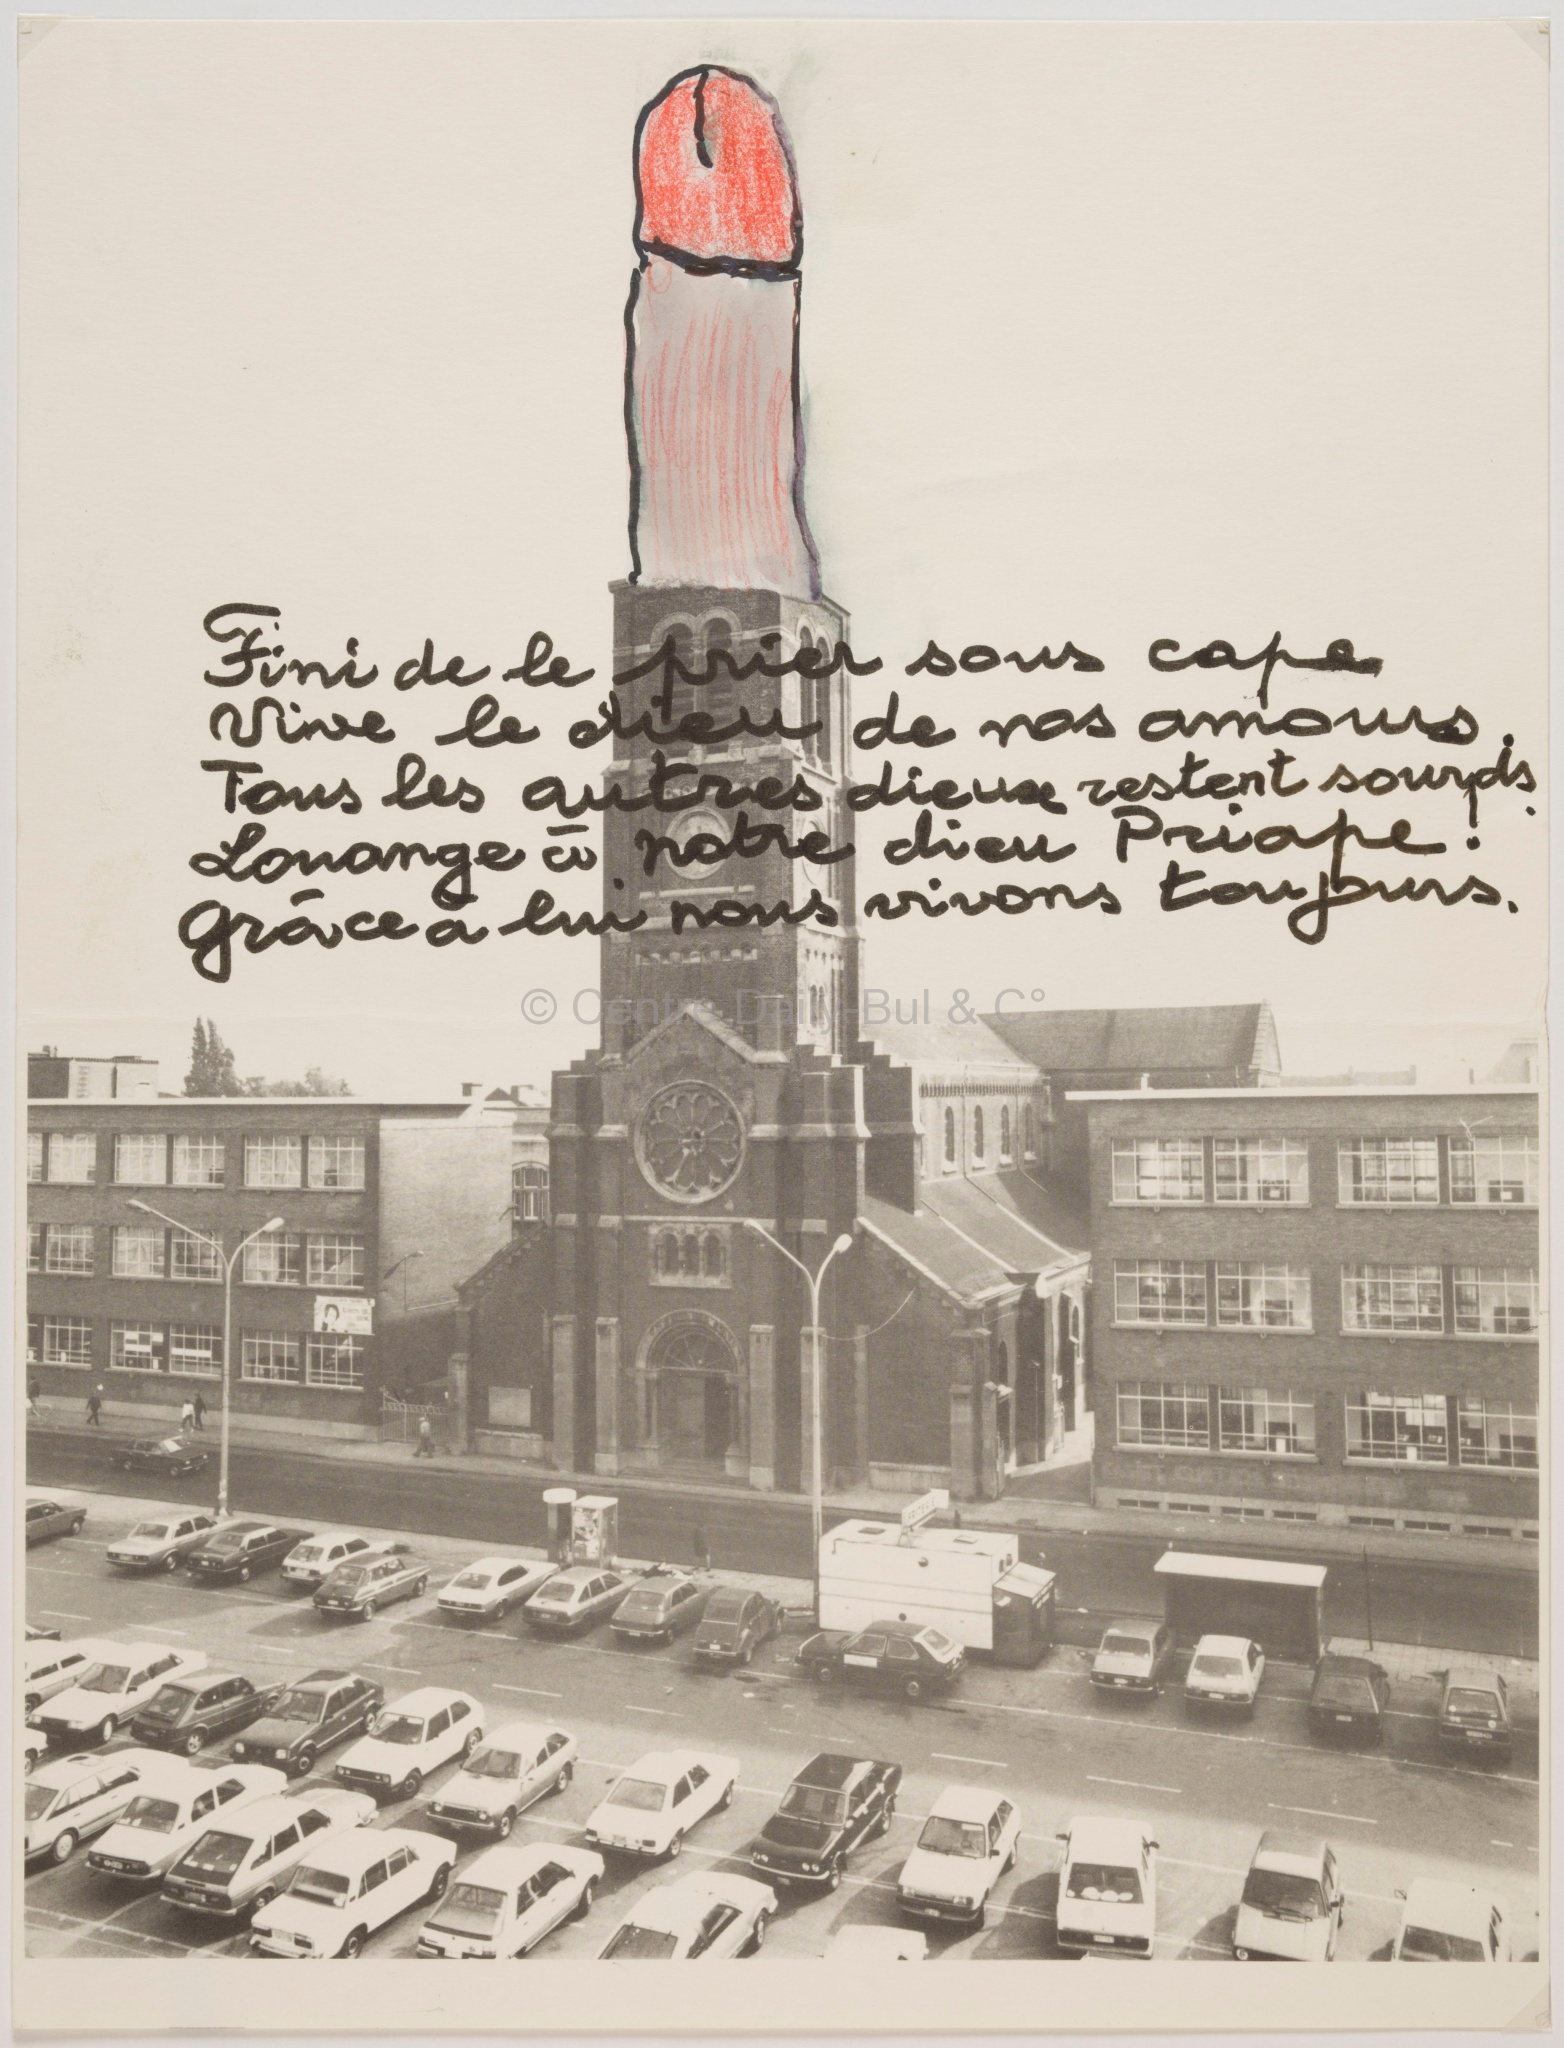 Fini de le prier sous cape
Vive le dieu de nos amours.
Tous les autres dieux restent sourds.
Louange à notre dieu Priape!
Grâce à lui nous vivons toujours.
© Centre Daily-Bul & C°